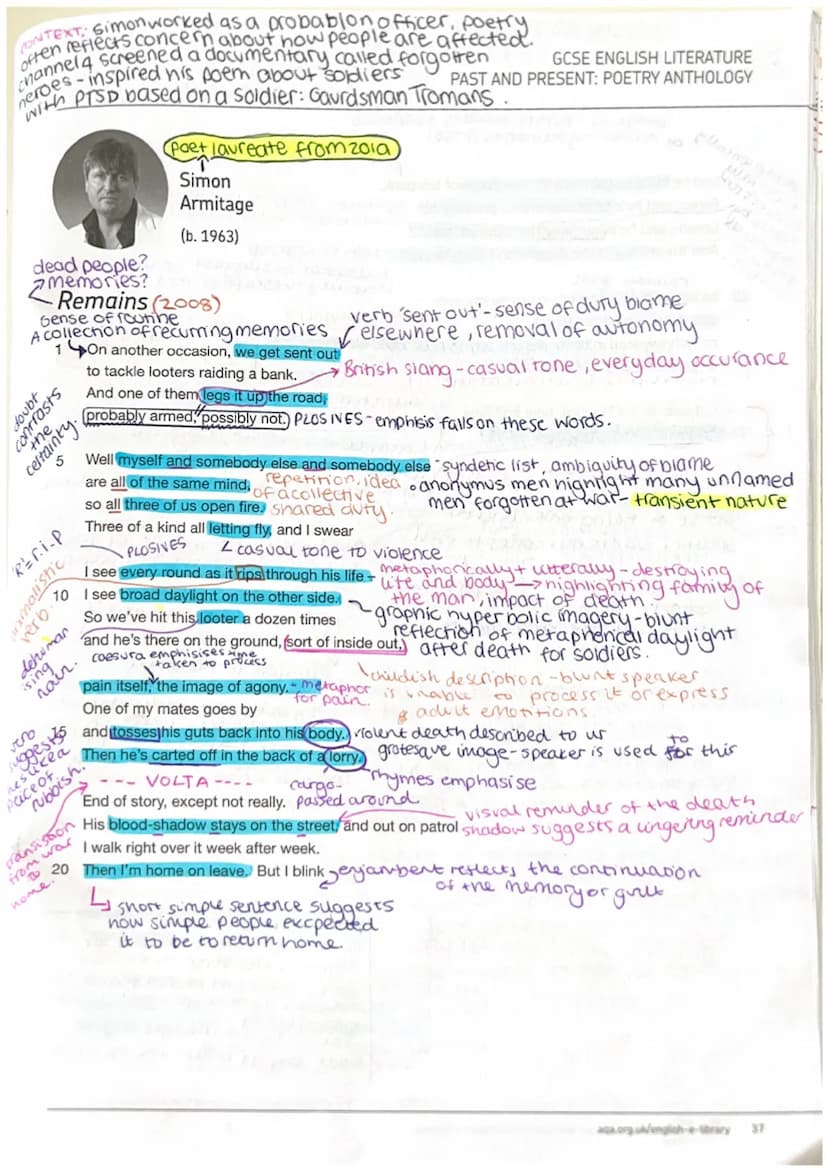 CONTEXT: Simon worked as a probablon officer, poetry
often reflects concern about how people are affected.
channel 4 screened a documentary called forgotten
heroes - inspired his poem about soldiers
with PTSD based on a soldier: Gaurdsman Tromans.
GCSE ENGLISH LITERATURE
PAST AND PRESENT: POETRY ANTHOLOGY
poet laureate from 2019
Simon
Armitage
(b. 1963)
dead people?
memories?
Remains (2008)
sense of routine
A collection of recurring memories
verb 'sent out' - sense of duty blame
elsewhere, removal of autonomy
1 On another occasion, we get sent out
to tackle looters raiding a bank.
British slang - casual tone, everyday occurance
And one of them legs it up the road,
probably armed, possibly not.
PLOSIVES - emphisis falls on these words.
doubt
contrasts
the
certainty.
5 Well myself and somebody else and somebody else
syndetic list, ambiguity of blame
are all of the same mind,
repetition, idea
of a collective
shared duty.
anonymus men highlight many unnamed
men forgotten at war - transient nature
so all three of us open fire.
Three of a kind all letting fly, and I swear
PLOSIVES
casual tone to violence
'R' = r.i.p
animalistic
verb
I see every round as it rips through his life -
metaphorically + litterally - destroying
life and body → highlighting family of
the man, impact of death.
10 I see broad daylight on the other side.
graphic hyperbolic imagery - blunt
reflection of metaphorical daylight
after death for soldiers.
So we've hit this looter a dozen times
and he's there on the ground, sort of inside out,
dehuman
ising
noun.
caesura emphisises time
taken to process
childish description - blunt speaker
is unable to process it or express
adult emotions
pain itself, the image of agony.
- metaphor
for pain.
One of my mates goes by
15 and tosses his guts back into his body.
violent death described to us
Then he's carted off in the back of a lorry.
grotesque image - speaker is used to for this
verb
suggests
hes like a
piece of
rubbish.
cargo -
passed around
rhymes emphasise
--- VOLTA ----
End of story, except not really.
His blood-shadow stays on the street, and out on patrol
visual reminder of the death
shadow suggests a lingering reminder
I walk right over it week after week.
transistion
from war
to
home.
20 Then I'm home on leave. But I blink
enjambent reflects the continuation
of the memory or guilt
short simple sentence suggests
how simple people excpected
it to be to return home.
aqa.org.uk/english-e-library 37